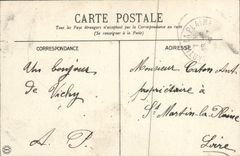 CARTE POSTALE
Tous les Pays étrangers n'acceptent pas la Correspondance au recto
(Se renseigner à la Poste)
CORRESPONDANCE
ADRESSE
Un bonjour
de Vichy
A. P.
Monsieur Caton Ant.
propriétaire à
St Martin-la-Plaine
Loire